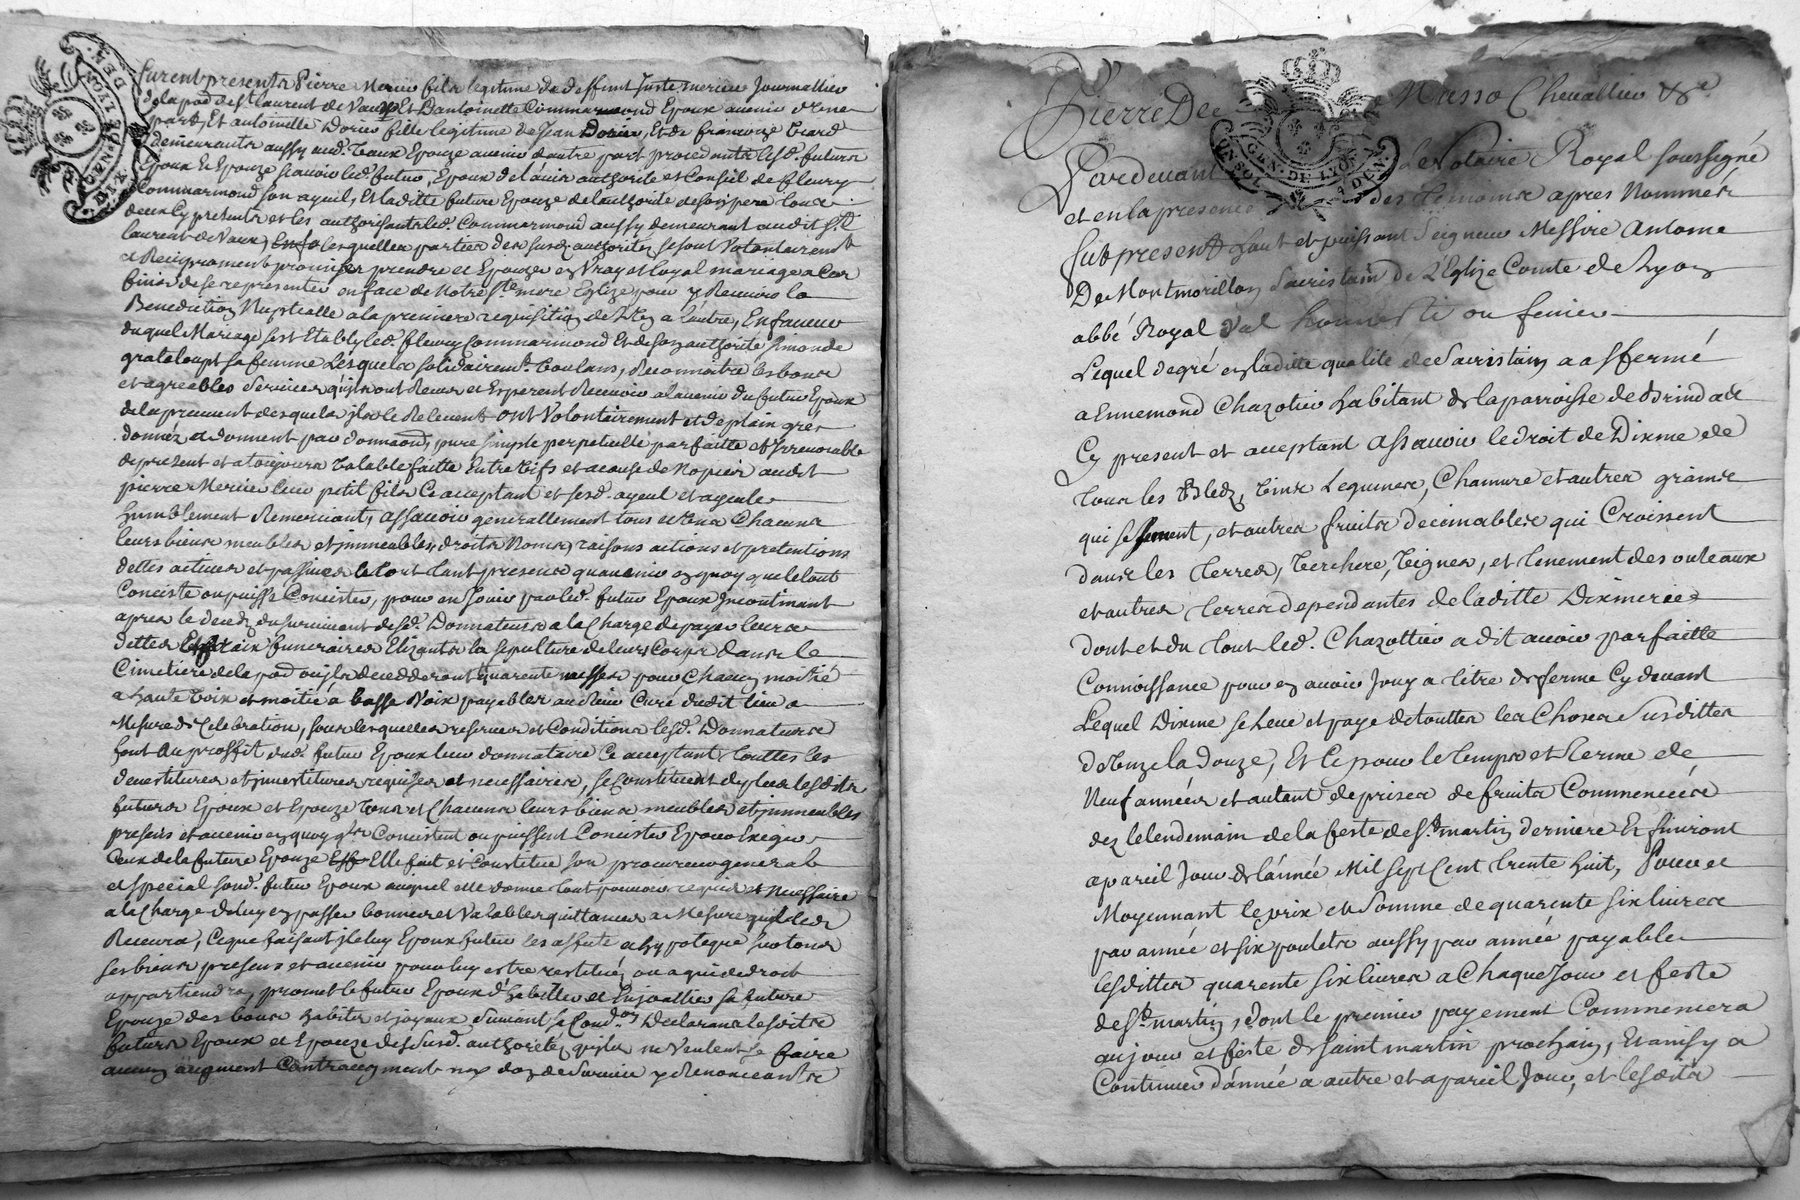 GEN. DE LYON
DIX DEN.
furent presents Pierre Mercier fils legitime de deffunt Juste mercier Journallier
de la par. de St. laurent de Vaux, Et D'antoinette Commarmond Epoux avenir d'une
part, Et antoinette Dorier fille legitime de Jean Dorier, Et de francoize
demeurants aussy aud. Vaux Epouze avenir d'autre part procedants lesd. futurs
Epoux Et Epouze scavoir led. futur Epoux de l'avis authorité et Conseil de fleury
Commarmond son ayeul, Et laditte future Epouze de l'authorité de son pere tous
deux Cy presents et les authorisants led. Commarmond aussy demeurant audit St.
laurent de Vaux, lesquelles parties des susd. authoritez se sont Volontairemt.
et Reciproquement promises prendre et Epouzer en Vray et loyal mariage a Ces
fins de se representer en face de Notre Ste. mere Eglize pour y Recevoir la
Benediction Nuptialle a la premiere requisition de l'un a l'autre, En faveur
duquel Mariage s'est Etably led. fleury Commarmond Et de son authorité Simonde
grataloupt sa femme Lesquels solidairemt. Voulans Reconnoitre les bons
et agreables Services qu'ils ont Receus et Esperent Recevoir a lavenir du futur Epoux
de la preuve desquels ils le Relevent ont Volontairement et de plain gré
donnéz et donnent par donnaon. pure simple perpetuelle parfaitte et Irrevocable
de present et a toujours Valable faitte Entre Vifs et a cause de Nopces audit
pierre Mercier leur petit fils Ce acceptant et sesd. ayeul et ayeule
humblement Remerciant, assavoir generallement tous et Uns Chacuns
leurs biens meubles et immeubles, droits Noms, raisons actions et pretentions
dettes actives et passives le tout tant presens quavenir en quoy que le tout
Conciste ou puisse Concister, pour en Jouir par led. futur Epoux Incontinant
apres le decedz du survivant desd. Donnateurs a la Charge de payer leurs
dettes Et fraix funeraires Elizants la sepulture de leurs Corps dans le
Cimetiere de la par. ou ils decedderont quarente messes pour Chacun moitié
a haute Voix et moitié a basse Voix payables au sieur Curé dudit lieu a
Mesure de Celebration, sous lesquelles reserves et Conditions lesd. Donnateurs
font au proffit dud. futur Epoux leur donnataire Ce acceptant touttes les
devestitures et investitures requises et necessaires, se constituent de plus lesdits
futurs Epoux et Epouze tous et Chacuns leurs biens meubles et immeubles
presens et avenir en quoy qils Concistent ou puissent Concister Epour Exiger
Ceux de la future Epouze Elle fait et Constitue son procureur general
et special sond. futur Epoux auquel elle donne tout pouvoir requis et Necessaire
a la Charge de luy en passer bonnes et Valables quittances a Mesure quil les
Recevra, Ce que faisant ledit Epoux futur les assure et hypoteque sur tous
ses biens presens et avenir pour luy estre restitués ou a qui de droit
appartiendra, promet le futur Epoux d'habiller et Enjoaller sa future
Epouze des bons habits et joyaux Suivant sa Condon. Declarans lesdits
futurs Epoux et Epouze des susd. authoritez qu'ils ne Veulent se faire
aucun augment Contraugment ny don de Survie y Renonceants
Pierre Dec
de Musso Chevallier &c.
GEN. DE LYON
UN SOL 4 DEN.
Pardevant Le Notaire Royal soussigné
et en la presence des temoins apres Nommés
fut present haut et puissant Seigneur Messire Antoine
De Montmorillon Sacristain de L'Eglize Comte de Lyon
abbé Royal ou fenier
Lequel de gré en ladite qualité de Sacristain a affermé
a Ennemond Chazotier habitant de la parroisse de Brindas
Cy present et acceptant assavoir le droit de Dixme de
tous les Bledz, Vins Legumes, Chanvre et autres grains
qui se sement, et autres fruits decimables qui Croissent
dans les terres, Vercheres, Vignes, et tenement des outeaux
et autres terres dependantes de laditte Dixmerie
dont et du tout led. Chazottier a dit avoir parfaitte
Connoissance pour en avoir Jouy a titre de ferme Cy devant
Lequel Dixme se leve et paye de touttes les Choses Susdittes
d'Onze la Douze, Et Ce pour le temps et terme de
Neuf années et autant de prises de fruits Commencées
dez le lendemain de la feste de St. martin derniere Et finiront
a pareil Jour de l'année Mil sept Cent trente huit, Pour et
Moyennant le prix et Somme de quarente six livres
par année et six poulets aussy par année payable
lesdittes quarente six livres a Chaque Jour et feste
de St. martin, dont le premier payement Commencera
au jour et feste de Saint martin prochain, Et ainsy a
Continuer d'année a autre et a pareil Jour, et lesdits